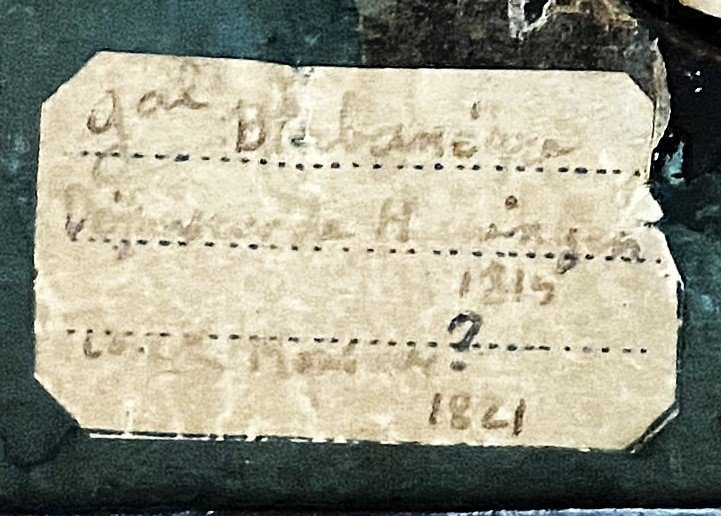 Gal Barbanègre
Défenseur de Huningue
1815
?
1821